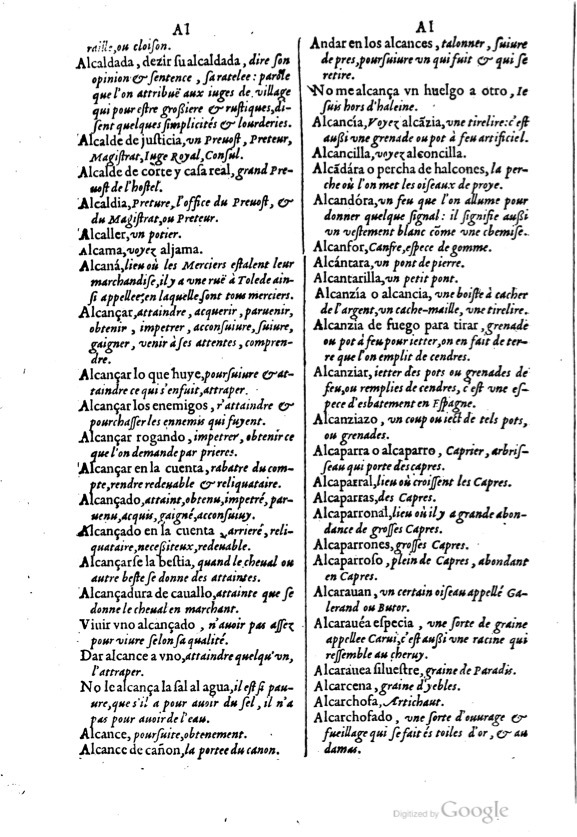 AI
raille, ou cloison.
Alcaldada, dezir su alcaldada, dire son
opinion & sentence, sa ratelee: parole
que l'on attribuë aux iuges de village
qui pour estre großiere & rustiques, di-
sent quelques simplicités & lourderies.
Alcalde de justicia, vn Preuost, Preteur,
Magistrat, Iuge Royal, Consul.
Alcalde de corte y casa real, grand Pre-
uost de l'hostel.
Alcaldia, Preture, l'office du Preuost, &
du Magistrat, ou Preteur.
Alcaller, vn potier.
Alcama, voyez aljama.
Alcaná, lieu où les Merciers estalent leur
marchandise, il y a vne ruë à Tolede ain-
si appellee, en laquelle sont tous merciers.
Alcançar, attaindre, acquerir, paruenir,
obtenir, impetrer, acconsuiure, suiure,
gaigner, venir à ses attentes, compren-
dre.
Alcançar lo que huye, poursuiure & at-
taindre ce qui s'enfuit, attraper.
Alcançar los enemigos, r'attaindre &
pourchasser les ennemis qui fuyent.
Alcançar rogando, impetrer, obtenir ce
que l'on demande par prieres.
Alcançar en la cuenta, rabatre du com-
pte, rendre redeuable & reliquataire.
Alcançado, attaint, obtenu, impetré, par-
uenu, acquis, gaigné, acconsuiuy.
Alcançado en la cuenta, arrieré, reli-
quataire, neceßiteux, redeuable.
Alcançarse la bestia, quand le cheual ou
autre beste se donne des attaintes.
Alcançadura de cauallo, attainte que se
donne le cheual en marchant.
Viuir vno alcançado, n'auoir pas assez
pour viure selon sa qualité.
Dar alcance a vno, attaindre quelqu'vn,
l'attraper.
No le alcança la sal al agua, il est si pau-
ure, que s'il a pour auoir du sel, il n'a
pas pour auoir de l'eau.
Alcance, poursuite, obtenement.
Alcance de cañon, la portee du canon.
AI
Andar en los alcances, talonner, suiure
de pres, poursuiure vn qui fuit & qui se
retire.
No me alcança vn huelgo a otro, Ie
suis hors d'haleine.
Alcancía, Voyez alcãzia, vne tirelire: c'est
außi vne grenade ou pot à feu artificiel.
Alcancilla, voyez alconcilla.
Alcãdára o percha de halcones, la per-
che où l'on met les oiseaux de proye.
Alcandóra, vn feu que l'on allume pour
donner quelque signal: il signifie außi
vn vestement blanc cõme vne chemise.
Alcanfor, Canfre, espece de gomme.
Alcántara, vn pont de pierre.
Alcantarilla, vn petit pont.
Alcanzía o alcancia, vne boiste à cacher
de l'argent, vn cache-maille, vne tirelire.
Alcanzia de fuego para tirar, grenade
ou pot à feu pour ietter, on en fait de ter-
re que l'on emplit de cendres.
Alcanziar, ietter des pots ou grenades de
feu, ou remplies de cendres, c'est vne es-
pece d'esbatement en Espagne.
Alcanziazo, vn coup ou iect de tels pots,
ou grenades.
Alcaparra o alcaparro, Caprier, arbris-
seau qui porte des capres.
Alcaparral, lieu où croissent les Capres.
Alcaparras, des Capres.
Alcaparronal, lieu où il y a grande abon-
dance de grosses Capres.
Alcaparrones, grosses Capres.
Alcaparroso, plein de Capres, abondant
en Capres.
Alcarauan, vn certain oiseau appellé Ga-
lerand ou Butor.
Alcarauéa especia, vne sorte de graine
appellee Carui, c'est außi vne racine qui
ressemble au cheruy.
Alcarauea siluestre, graine de Paradis.
Alcarcena, graine d'yebles.
Alcarchofa, Artichaut.
Alcarchofado, vne sorte d'ouurage &
fueillage qui se fait és toiles d'or, & au
damas.
Digitized by Google